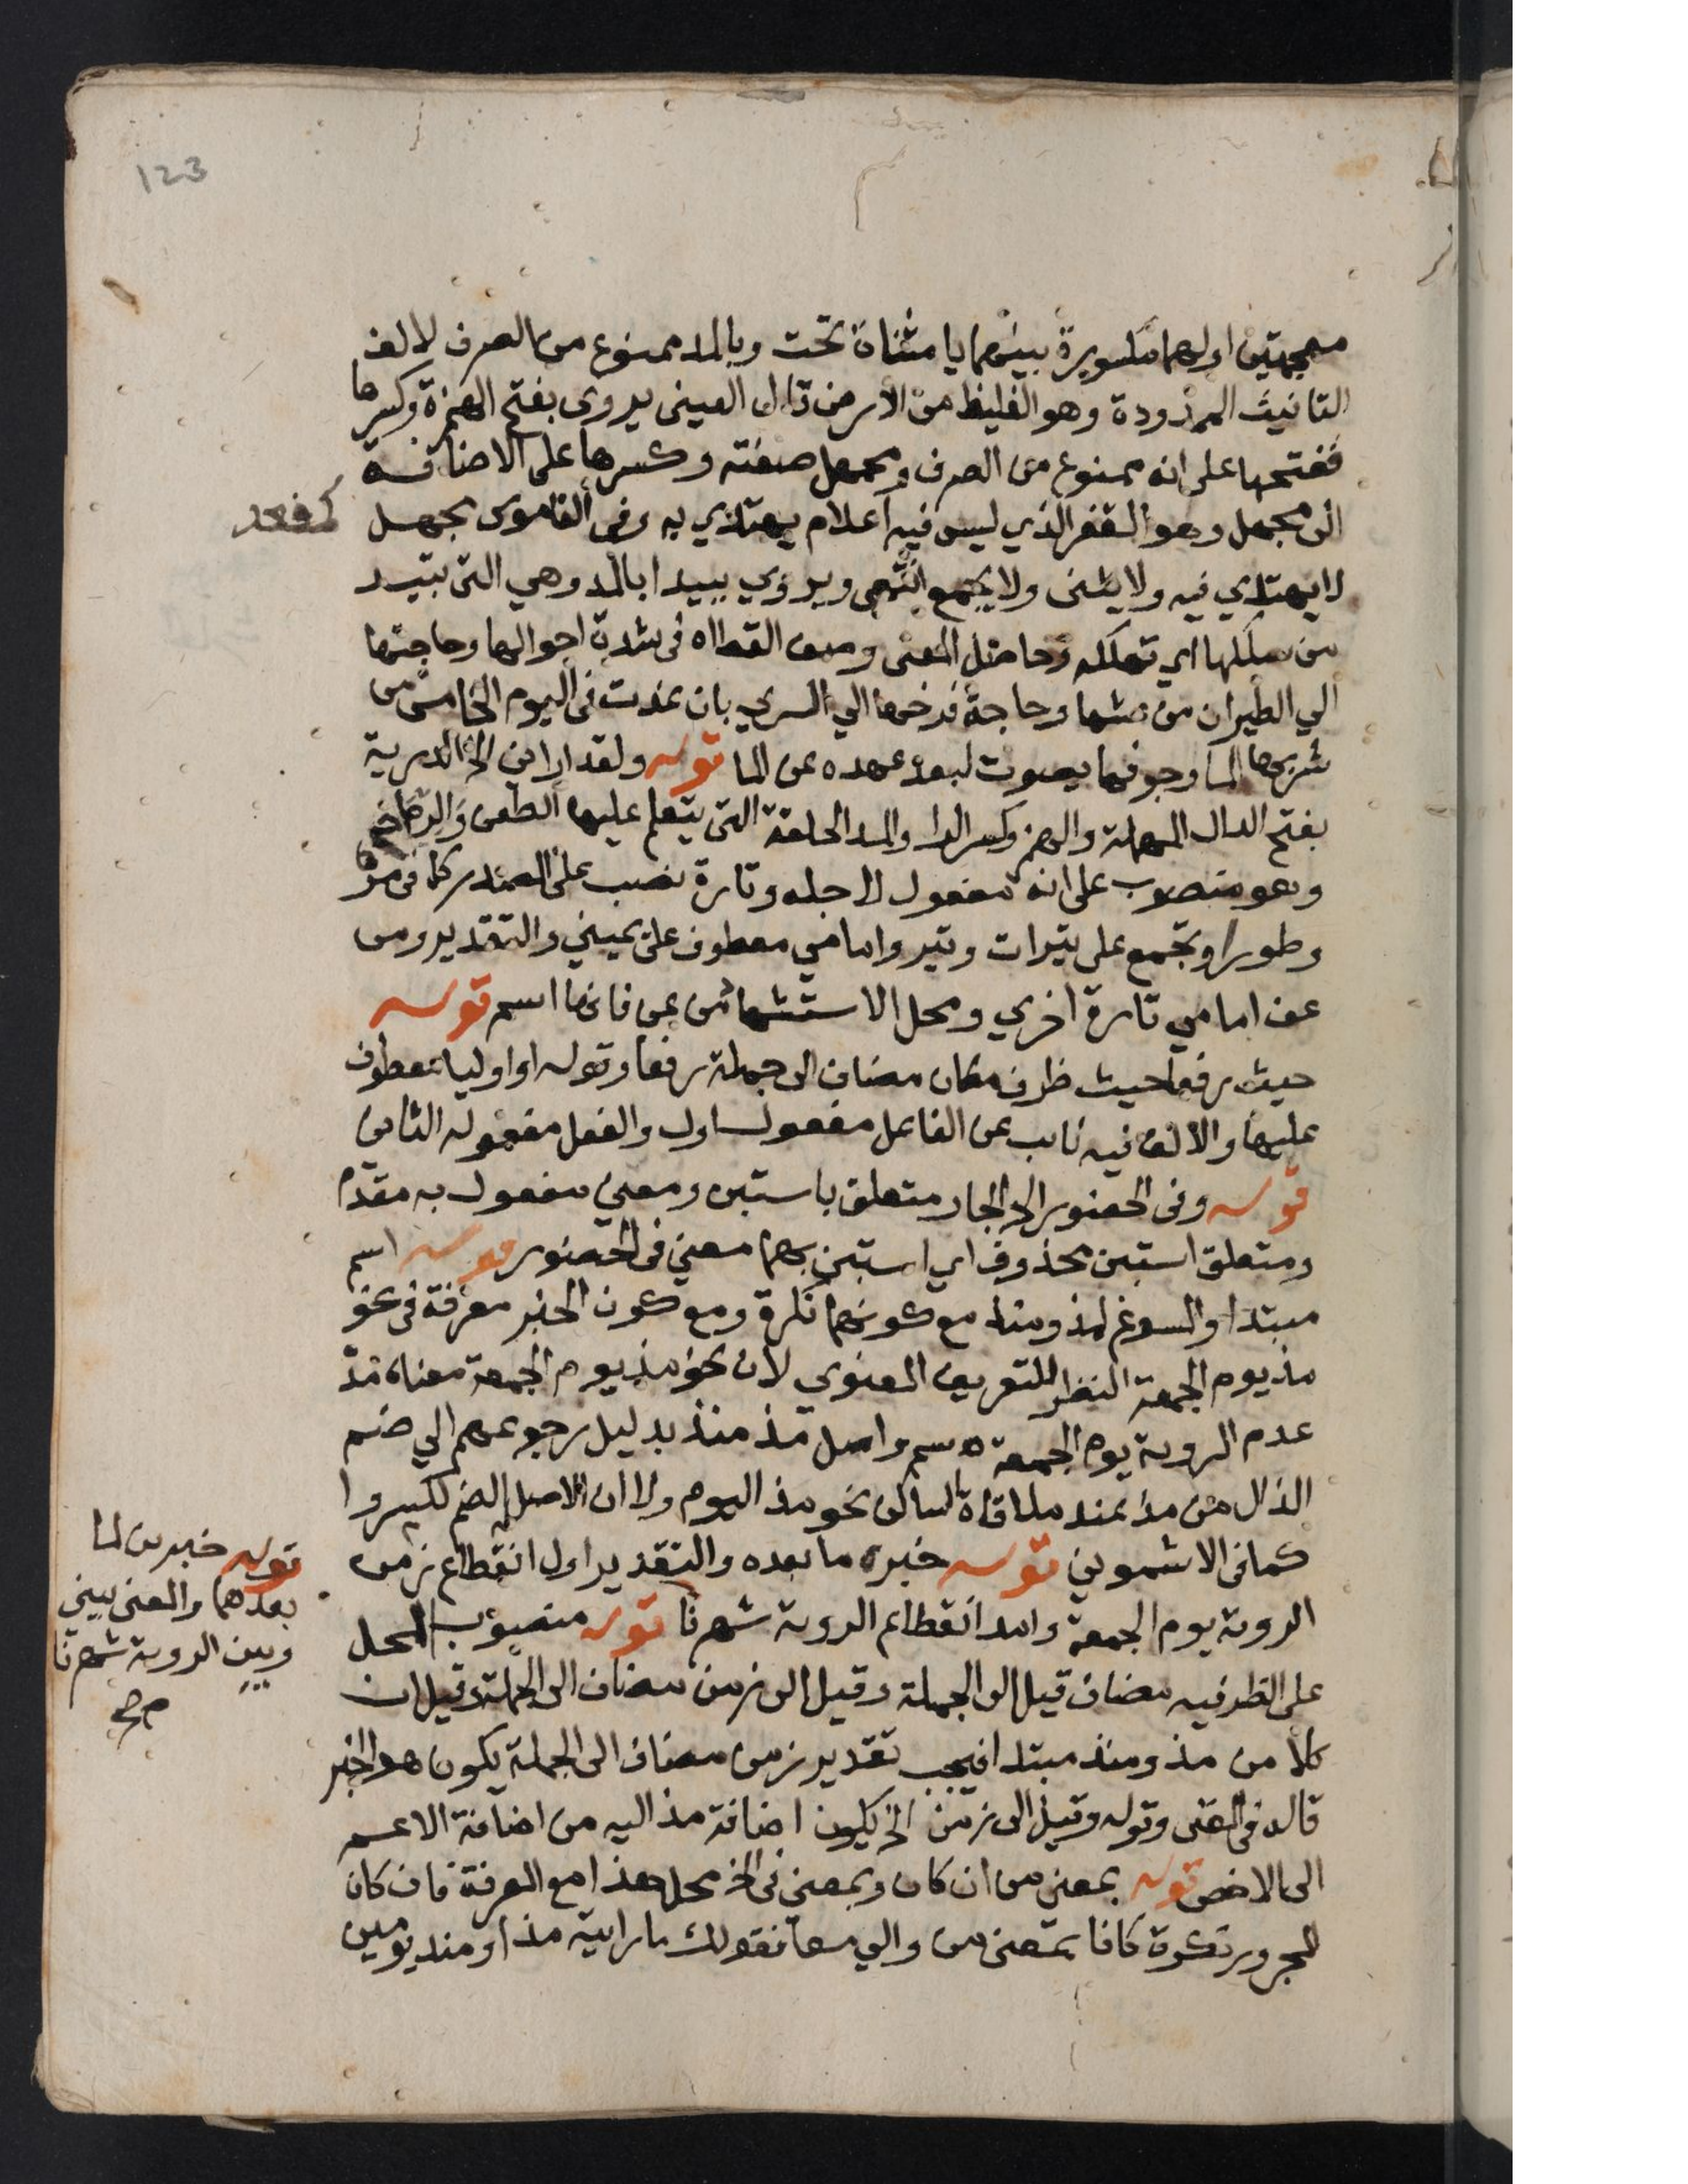 123
معجمتين اولهما مكسورة بينهما يا مثناة تحت وبالمد ممنوع من الصرف لالف
التانيث الممدودة وهو الغليظ من الارض قال العينى يروى بفتح الهمزة وكسرها
ففتحها على انه ممنوع من الصرف ومجهل صفته وكسرها على الاضافة
الى مجهل وهو القفر الذي ليس فيه اعلام يهتدي به وفى القاموس مجهل
كمقعد
لا يهتدي فيه ولا يثنى ولا يجمع انتهى ويروي ببيدا بالمد وهي التى تبيد
من سلكلها اي تهلكه وحاصل المعنى وصف القطاه فى شدة احوالها وحاجتها
الي الطيران من عشها وحاجة فرخها الي السري بان غدت فى اليوم الخامس من
شربها الما وجوفها يصوت لبعد عهده عن الما قوله ولقد اراني الخ الدرية
بفتح الدال المهملة والهمز وكسر الرا والمد الحلقة التى يتعلم عليها الطعن والرماح
وهو منصوب على انه مفعول لاجله وتارة نصب على المصدر كما فى مرة
وطورا وتجمع على تيرات وتير وامامي معطوف على يميني والتقدير ومن
عن امامي تارة اخري ومحل الاستشهاد من عن فانها اسم قوله
حيث رفعا حيث ظرف مكان مضاف الى جملة رفعا وقوله او اوليا معطوف
عليها والالف فيه نايب عن الفاعل مفعول اول والفعل مفعوله الثانى
قوله وفى الحضور الخ الجار متعلق باستبن ومعني مفعول به مقدم
ومتعلق استبن محذوف اي استبن بهما معني فى الحضور قوله اسم
مبتدا والمسوغ لمذ ومنذ مع كونهما نكرة ومع كون الخبر معرفة فى نحو
مذ يوم الجمعة النظر للتعريف المعنوي لان نحو مذ يوم الجمعة معناه مدة
عدم الروية يوم الجمعة ه سم واصل مذ منذ بدليل رجوعهم الي ضم
الذال من مذ عند ملاقاة الساكن نحو مذ اليوم ولا ان الاصل الضم لكسروا
كما فى الاشموني قوله خبره ما بعده والتقدير اول انقطاع زمن
الروية يوم الجمعة وامد انقطاع الروية شهرنا قوله منصوب المحل
على الظرفيه مضاف قيل الى الجملة وقيل الى زمن مضاف الى الجملة وقيل ان
كلا من مذ ومنذ مبتدا فيجب تقدير زمن مضاف الى الجملة يكون هو الخبر
قاله فى المغنى وقوله وقيل الى زمن الخ يكون اضافة مذ اليه من اضافة الاعم
الى الاخص قوله بمعنى من ان كان وبمعني فى الخ محل هذا مع المعرفة فان كان
المجرور نكرة كانا بمعنى من والي معا نقولك ما رايته مذ او منذ يومين
قوله خبرين لما
بعدهما والمعنى بيني
وبين الروية شهرنا
صح